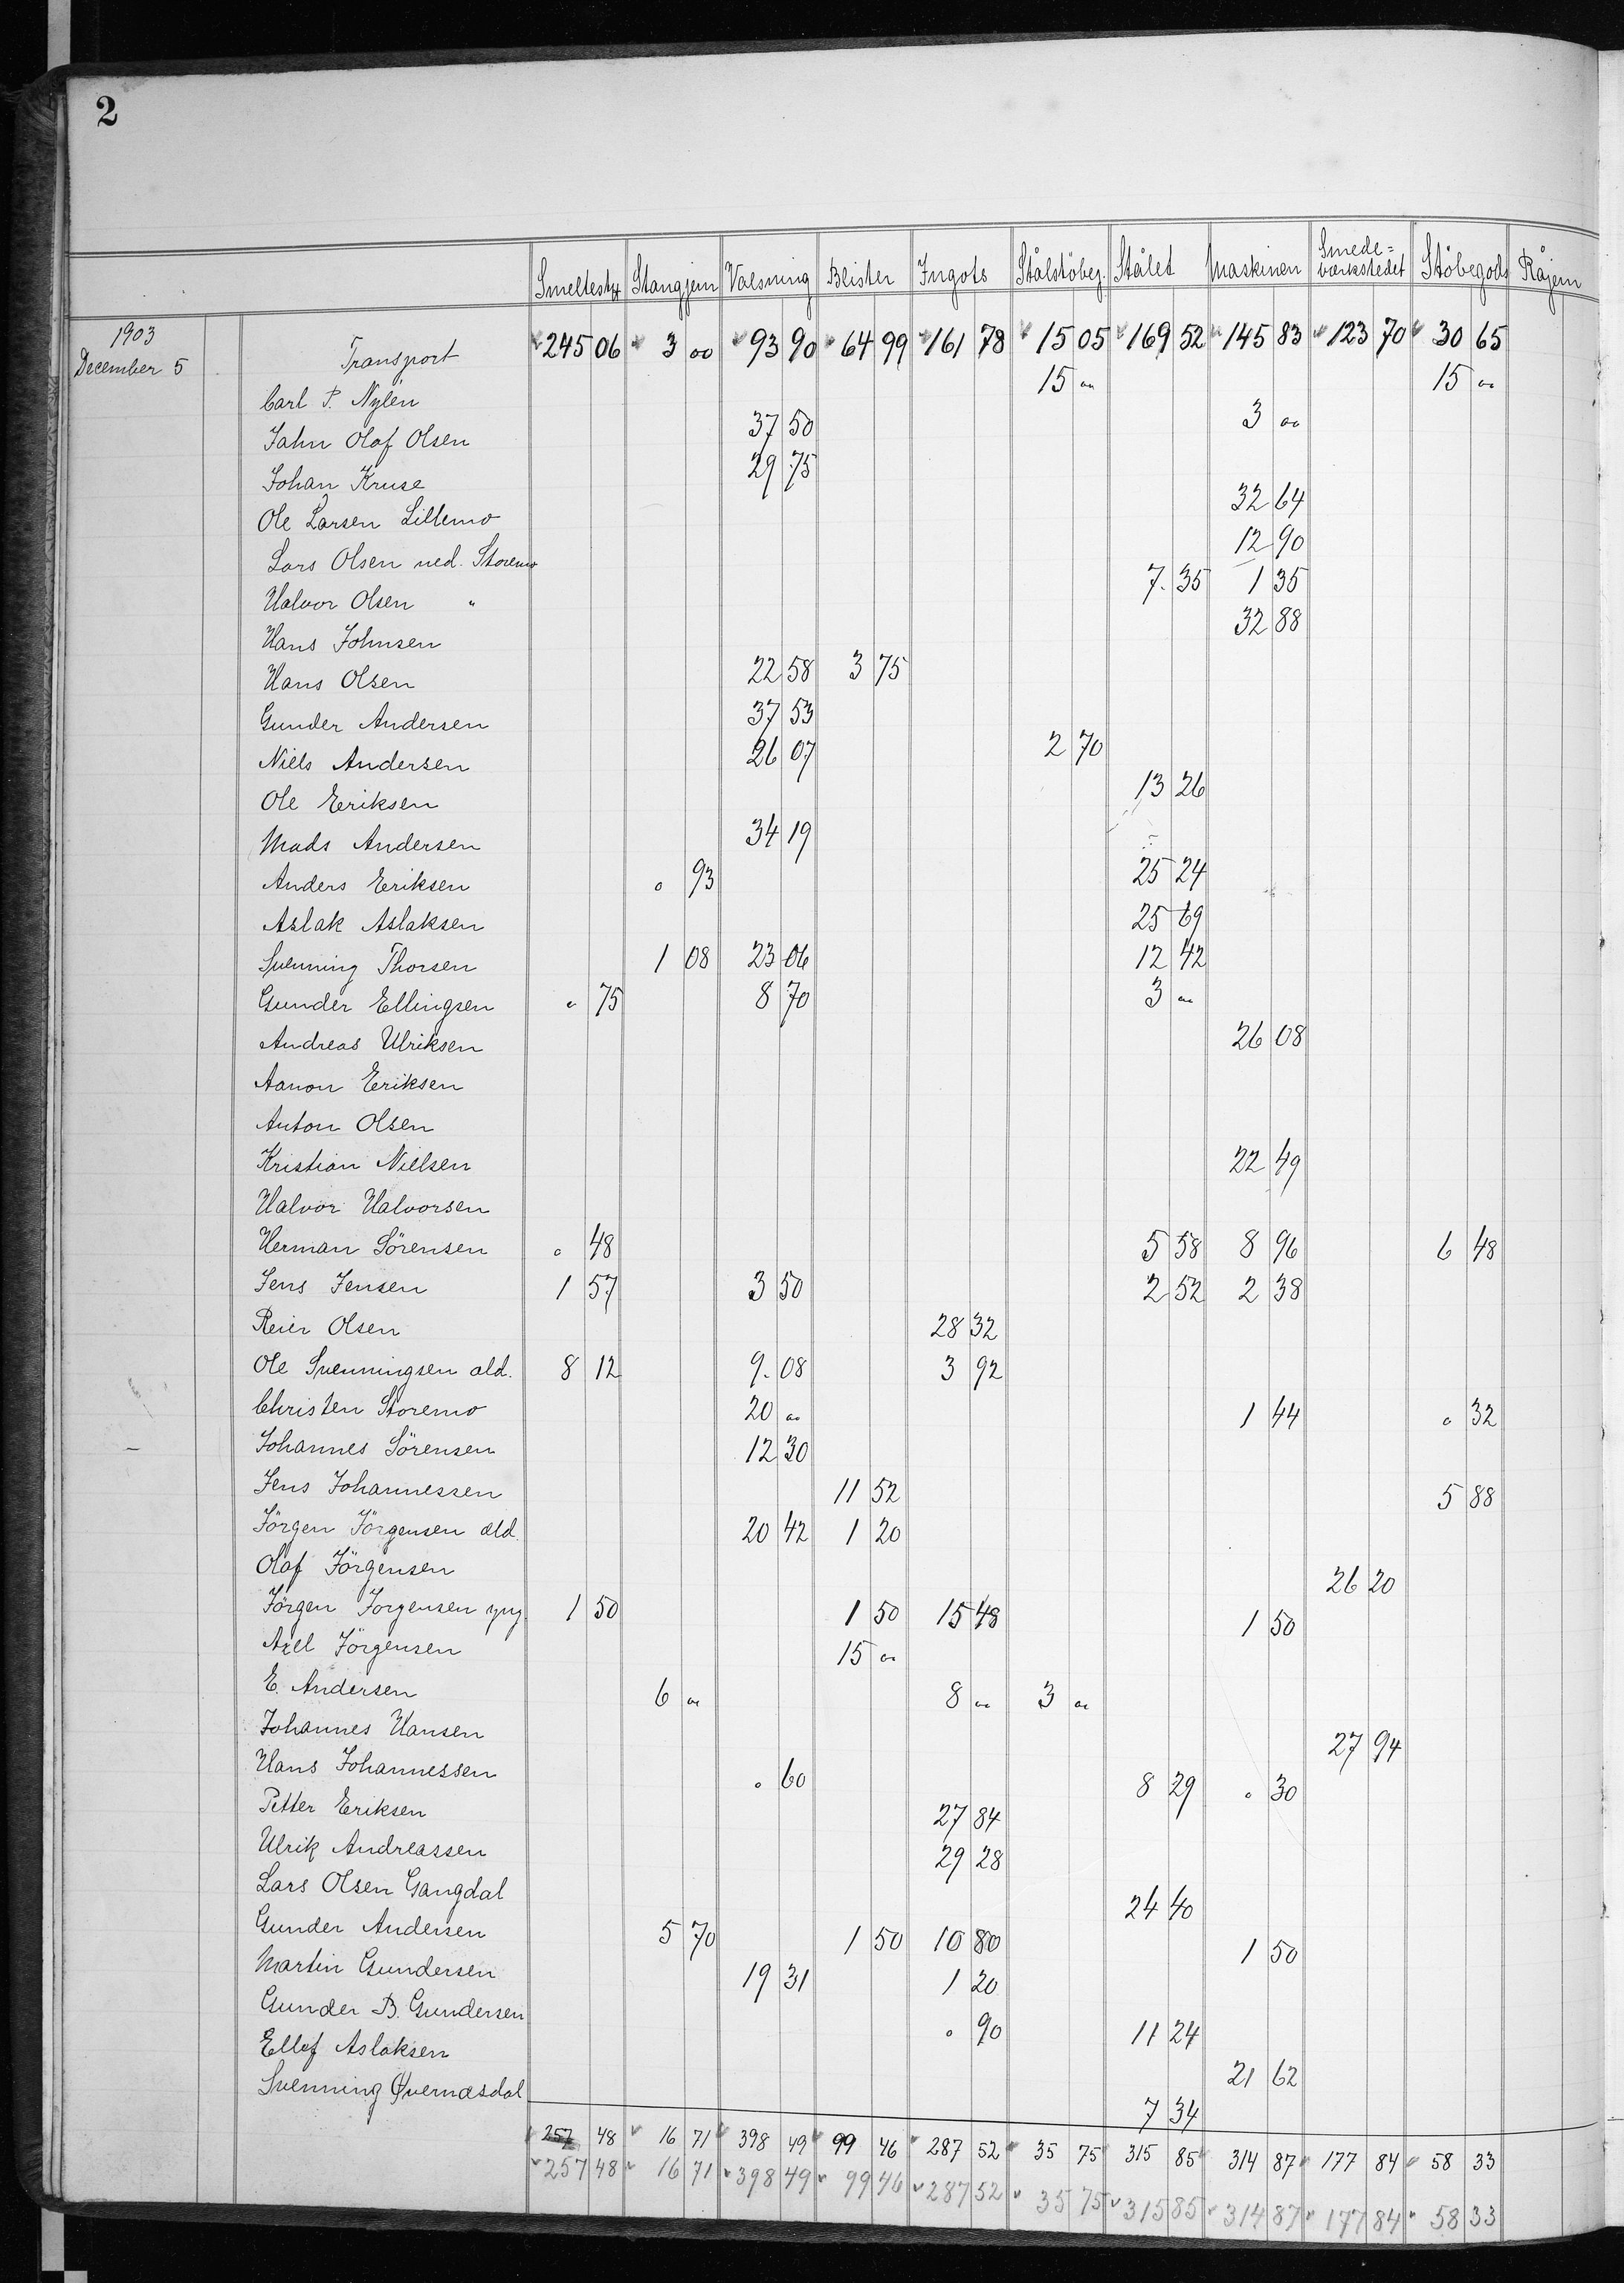 2
Smeltestyk Stangjern Valsning Blister Ingots Stålstöbeg. Stålet Maskinen Smede=værkstedet Stöbegods Råjern
1903
December 5 Transport 245 06 3 00 93 90 64 99 161 78 15 05 169 52 145 83 123 70 30 65
Carl P. Nylén 15 00 15 00
Jahn Olof Olsen 37 50 3 00
Johan Kruse 29 75
Ole Larsen Lillemo 32 64
Lars Olsen ned. Storemo 12 90
Halvor Olsen " 7.35 1 35
Hans Johnsen 32 88
Hans Olsen 22 58 3 75
Gunder Andersen 37 53
Niels Andersen 26 07 2 70
Ole Eriksen 13 26
Mads Andersen 34 19
Anders Eriksen 0 93 25 24
Aslak Aslaksen 25 69
Svenning Thorsen 1 08 23 06 12 42
Gunder Ellingsen 0 75 8 70 3 00
Andreas Ulriksen 26 08
Aanon Eriksen
Anton Olsen
Kristian Nielsen 22 49
Halvor Halvorsen
Herman Sörensen 0 48 5 58 8 96 6 48
Jens Jensen 1 57 3 50 2 52 2 38
Reier Olsen 28 32
Ole Svenningsen æld. 8 12 9.08 3 92
Christen Storemo 20 00 1 44 0 32
Johannes Sörensen 12 30
Jens Johannessen 11 52 5 88
Jörgen Jörgensen æld. 20 42 1 20
Olaf Jörgensen 26 20
Jörgen Jorgensen yng. 1 50 1 50 15 48 1 50
Axel Jörgensen 15 00
E. Andersen 6 00 8 00 3 00
Johannes Hansen 27 94
Hans Johannessen 0 60 8 29 0 30
Petter Eriksen 27 84
Ulrik Andreassen 29 28
Lars Olsen Gangdal 24 40
Gunder Andersen 5 70 1 50 10 80 1 50
Martin Gundersen 19 31 1 20
Gunder B. Gundersen 0 90 11 24
Ellef Aslaksen 21 62
Svenning Øvernæsdal 7 34
257 48 16 71 398 49 99 46 287 52 35 75 315 85 314 87 177 84 58 33
257 48 16 71 398 49 99 46 287 52 35 75 315 85 314 87 177 84 58 33